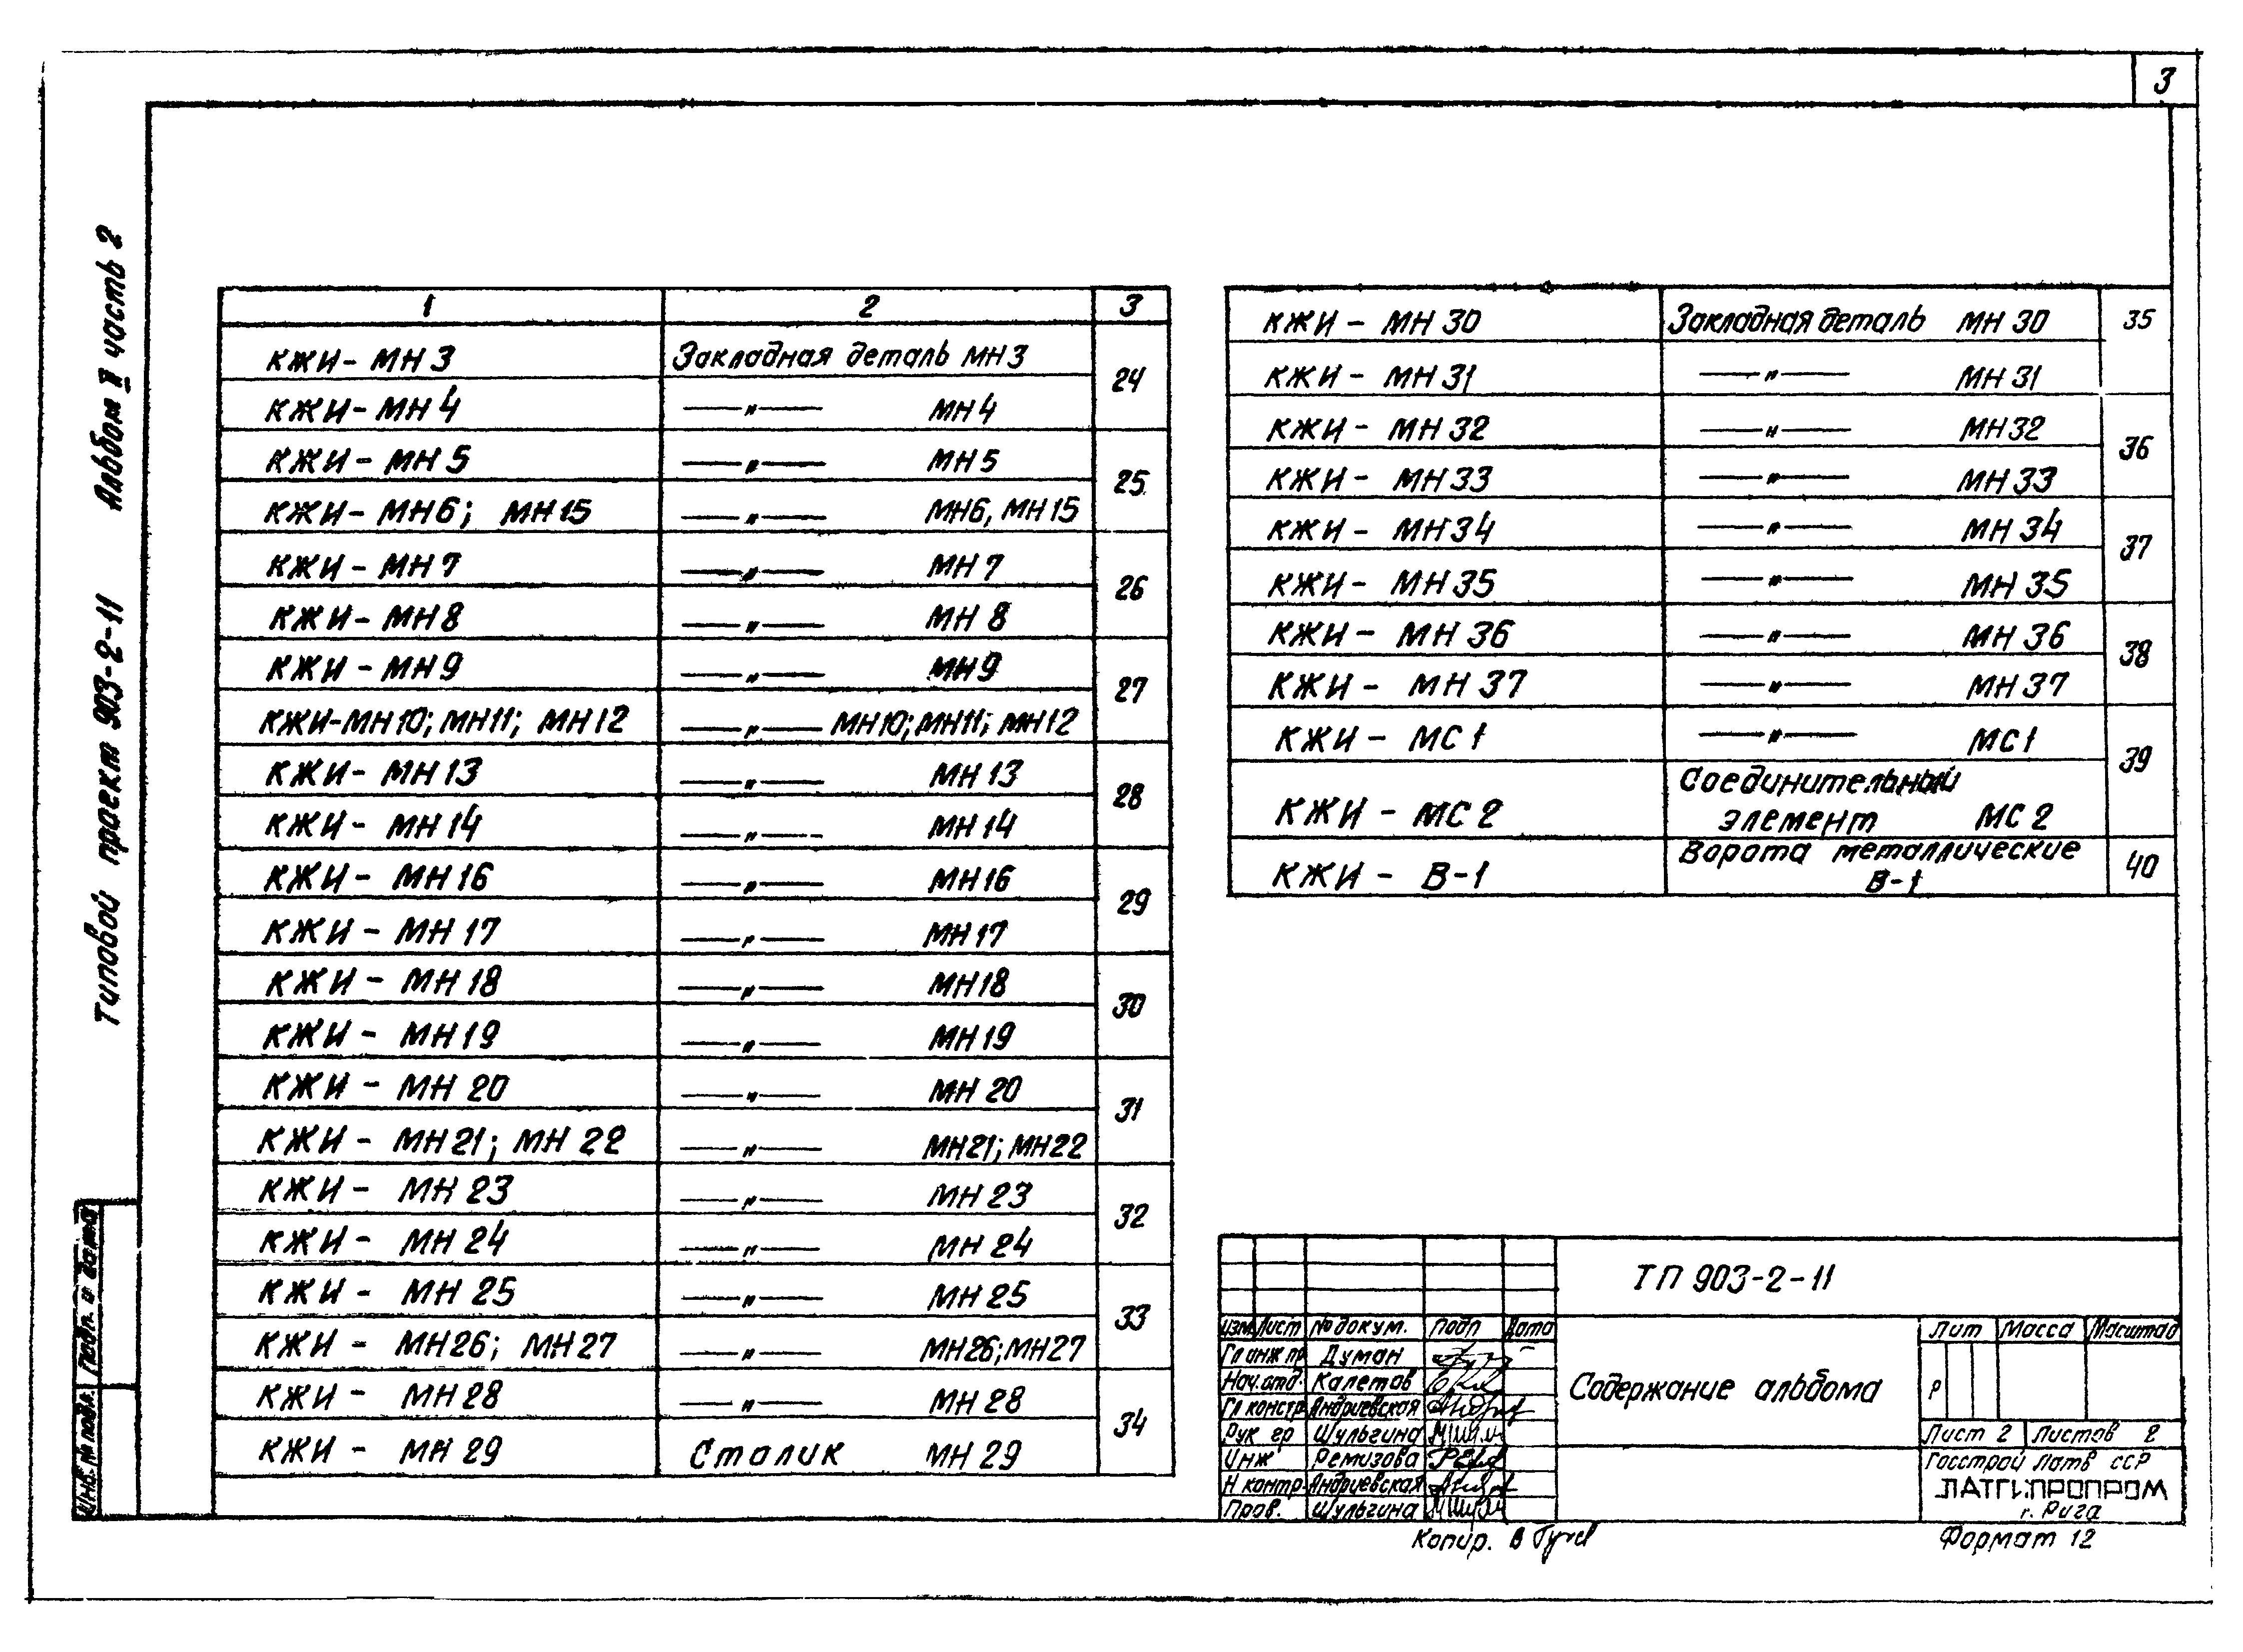 3
Типовой проект 903-2-11 Альбом II часть 2
1 2 3
КЖИ - МН 3 Закладная деталь МН 3 24
КЖИ - МН 4 —"— МН 4
КЖИ - МН 5 —"— МН 5 25
КЖИ - МН6; МН 15 —"— МН6, МН 15
КЖИ - МН 7 —"— МН 7 26
КЖИ - МН 8 —"— МН 8
КЖИ - МН 9 —"— МН 9 27
КЖИ-МН10; МН11; МН12 —"— МН10; МН11; МН12
КЖИ - МН 13 —"— МН 13 28
КЖИ - МН 14 —"— МН 14
КЖИ - МН 16 —"— МН 16 29
КЖИ - МН 17 —"— МН 17
КЖИ - МН 18 —"— МН 18 30
КЖИ - МН 19 —"— МН 19
КЖИ - МН 20 —"— МН 20 31
КЖИ - МН 21; МН 22 —"— МН21; МН22
КЖИ - МН 23 —"— МН 23 32
КЖИ - МН 24 —"— МН 24
КЖИ - МН 25 —"— МН 25 33
КЖИ - МН26; МН27 —"— МН26; МН27
КЖИ - МН 28 —"— МН 28 34
КЖИ - МН 29 Сталик МН 29
КЖИ - МН 30 Закладная деталь МН 30 35
КЖИ - МН 31 —"— МН 31
КЖИ - МН 32 —"— МН 32 36
КЖИ - МН 33 —"— МН 33
КЖИ - МН 34 —"— МН 34 37
КЖИ - МН 35 —"— МН 35
КЖИ - МН 36 —"— МН 36 38
КЖИ - МН 37 —"— МН 37
КЖИ - МС 1 —"— МС 1 39
Соединительный
КЖИ - МС 2 элемент МС 2
Ворота металлические
КЖИ - В-1 В-1 40
ТП 903-2-11
Изм. Лист № докум. Подп Дата
Гл инж пр Думан
Нач. отд. Калетов
Гл констр Андриевская
Рук гр Шульгина
Инж Ремизова
Н контр. Андриевская
Пров. Шульгина
Содержание альбома
Лит Масса Масштаб
Р
Лист 2 Листов 2
Госстрой Латв ССР
ЛАТГИПРОПРОМ
г. Рига
Копир. В
Формат 12
Подп. и дата
Инв. № подл.